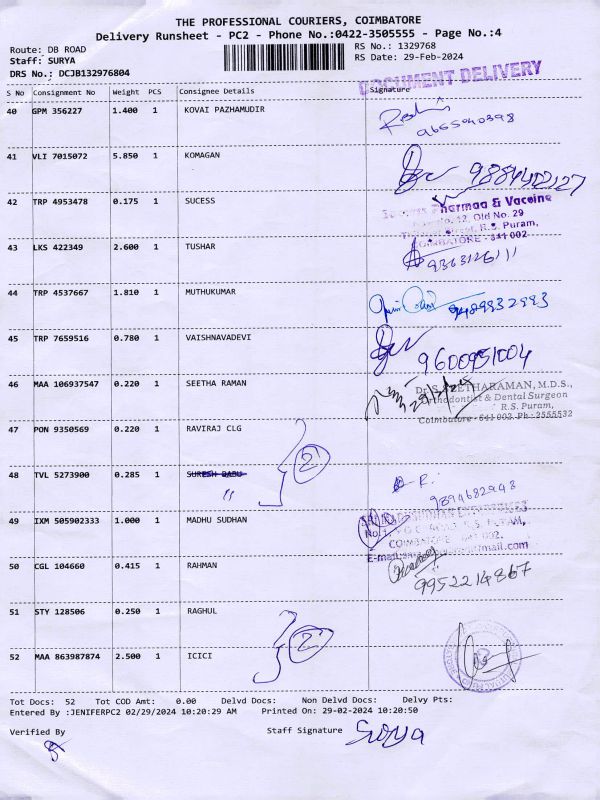 THE PROFESSIONAL COURIERS, COIMBATORE
Delivery Runsheet - PC2 - Phone No.:0422-3505555 - Page No.:4
Route: DB ROAD
RS No.: 1329768
Staff: SURYA
RS Date: 29-Feb-2024
DRS No.: DCJB132976804
DOCUMENT DELIVERY
S No Consignment No Weight PCS Consignee Details Signature
40 GPM 356227 1.400 1 KOVAI PAZHAMUDIR
9655040398
41 VLI 7015072 5.850 1 KOMAGAN
42 TRP 4953478 0.175 1 SUCESS
Pharmaa & Vaccine
12, Old No. 29
Street, R.S. Puram,
COIMBATORE - 641 002
43 LKS 422349 2.600 1 TUSHAR
44 TRP 4537667 1.810 1 MUTHUKUMAR
45 TRP 7659516 0.780 1 VAISHNAVADEVI
9600951004
46 MAA 106937547 0.220 1 SEETHA RAMAN
Dr. S. SEETHARAMAN, M.D.S.,
Orthodontist & Dental Surgeon
R.S. Puram,
Coimbatore - 641 002. Ph : 2555532
47 PON 9350569 0.220 1 RAVIRAJ CLG
2
48 TVL 5273900 0.285 1 SURESH BABU
"
R.
9894682948
49 IXM 505902333 1.000 1 MADHU SUDHAN
No.1, R.S. PURAM,
COIMBATORE - 641 002.
50 CGL 104660 0.415 1 RAHMAN
9952214867
51 STY 128506 0.250 1 RAGHUL
2
52 MAA 863987874 2.500 1 ICICI
Tot Docs: 52 Tot COD Amt: 0.00 Delvd Docs: Non Delvd Docs: Delvy Pts:
Entered By :JENIFERPC2 02/29/2024 10:20:29 AM Printed On: 29-02-2024 10:20:50
Verified By
Staff Signature Surya